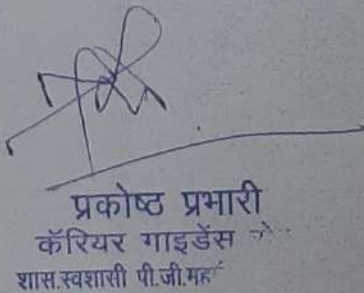 प्रकोष्ठ प्रभारी
कॅरियर गाइडेंस
शास.स्वशासी पी.जी.